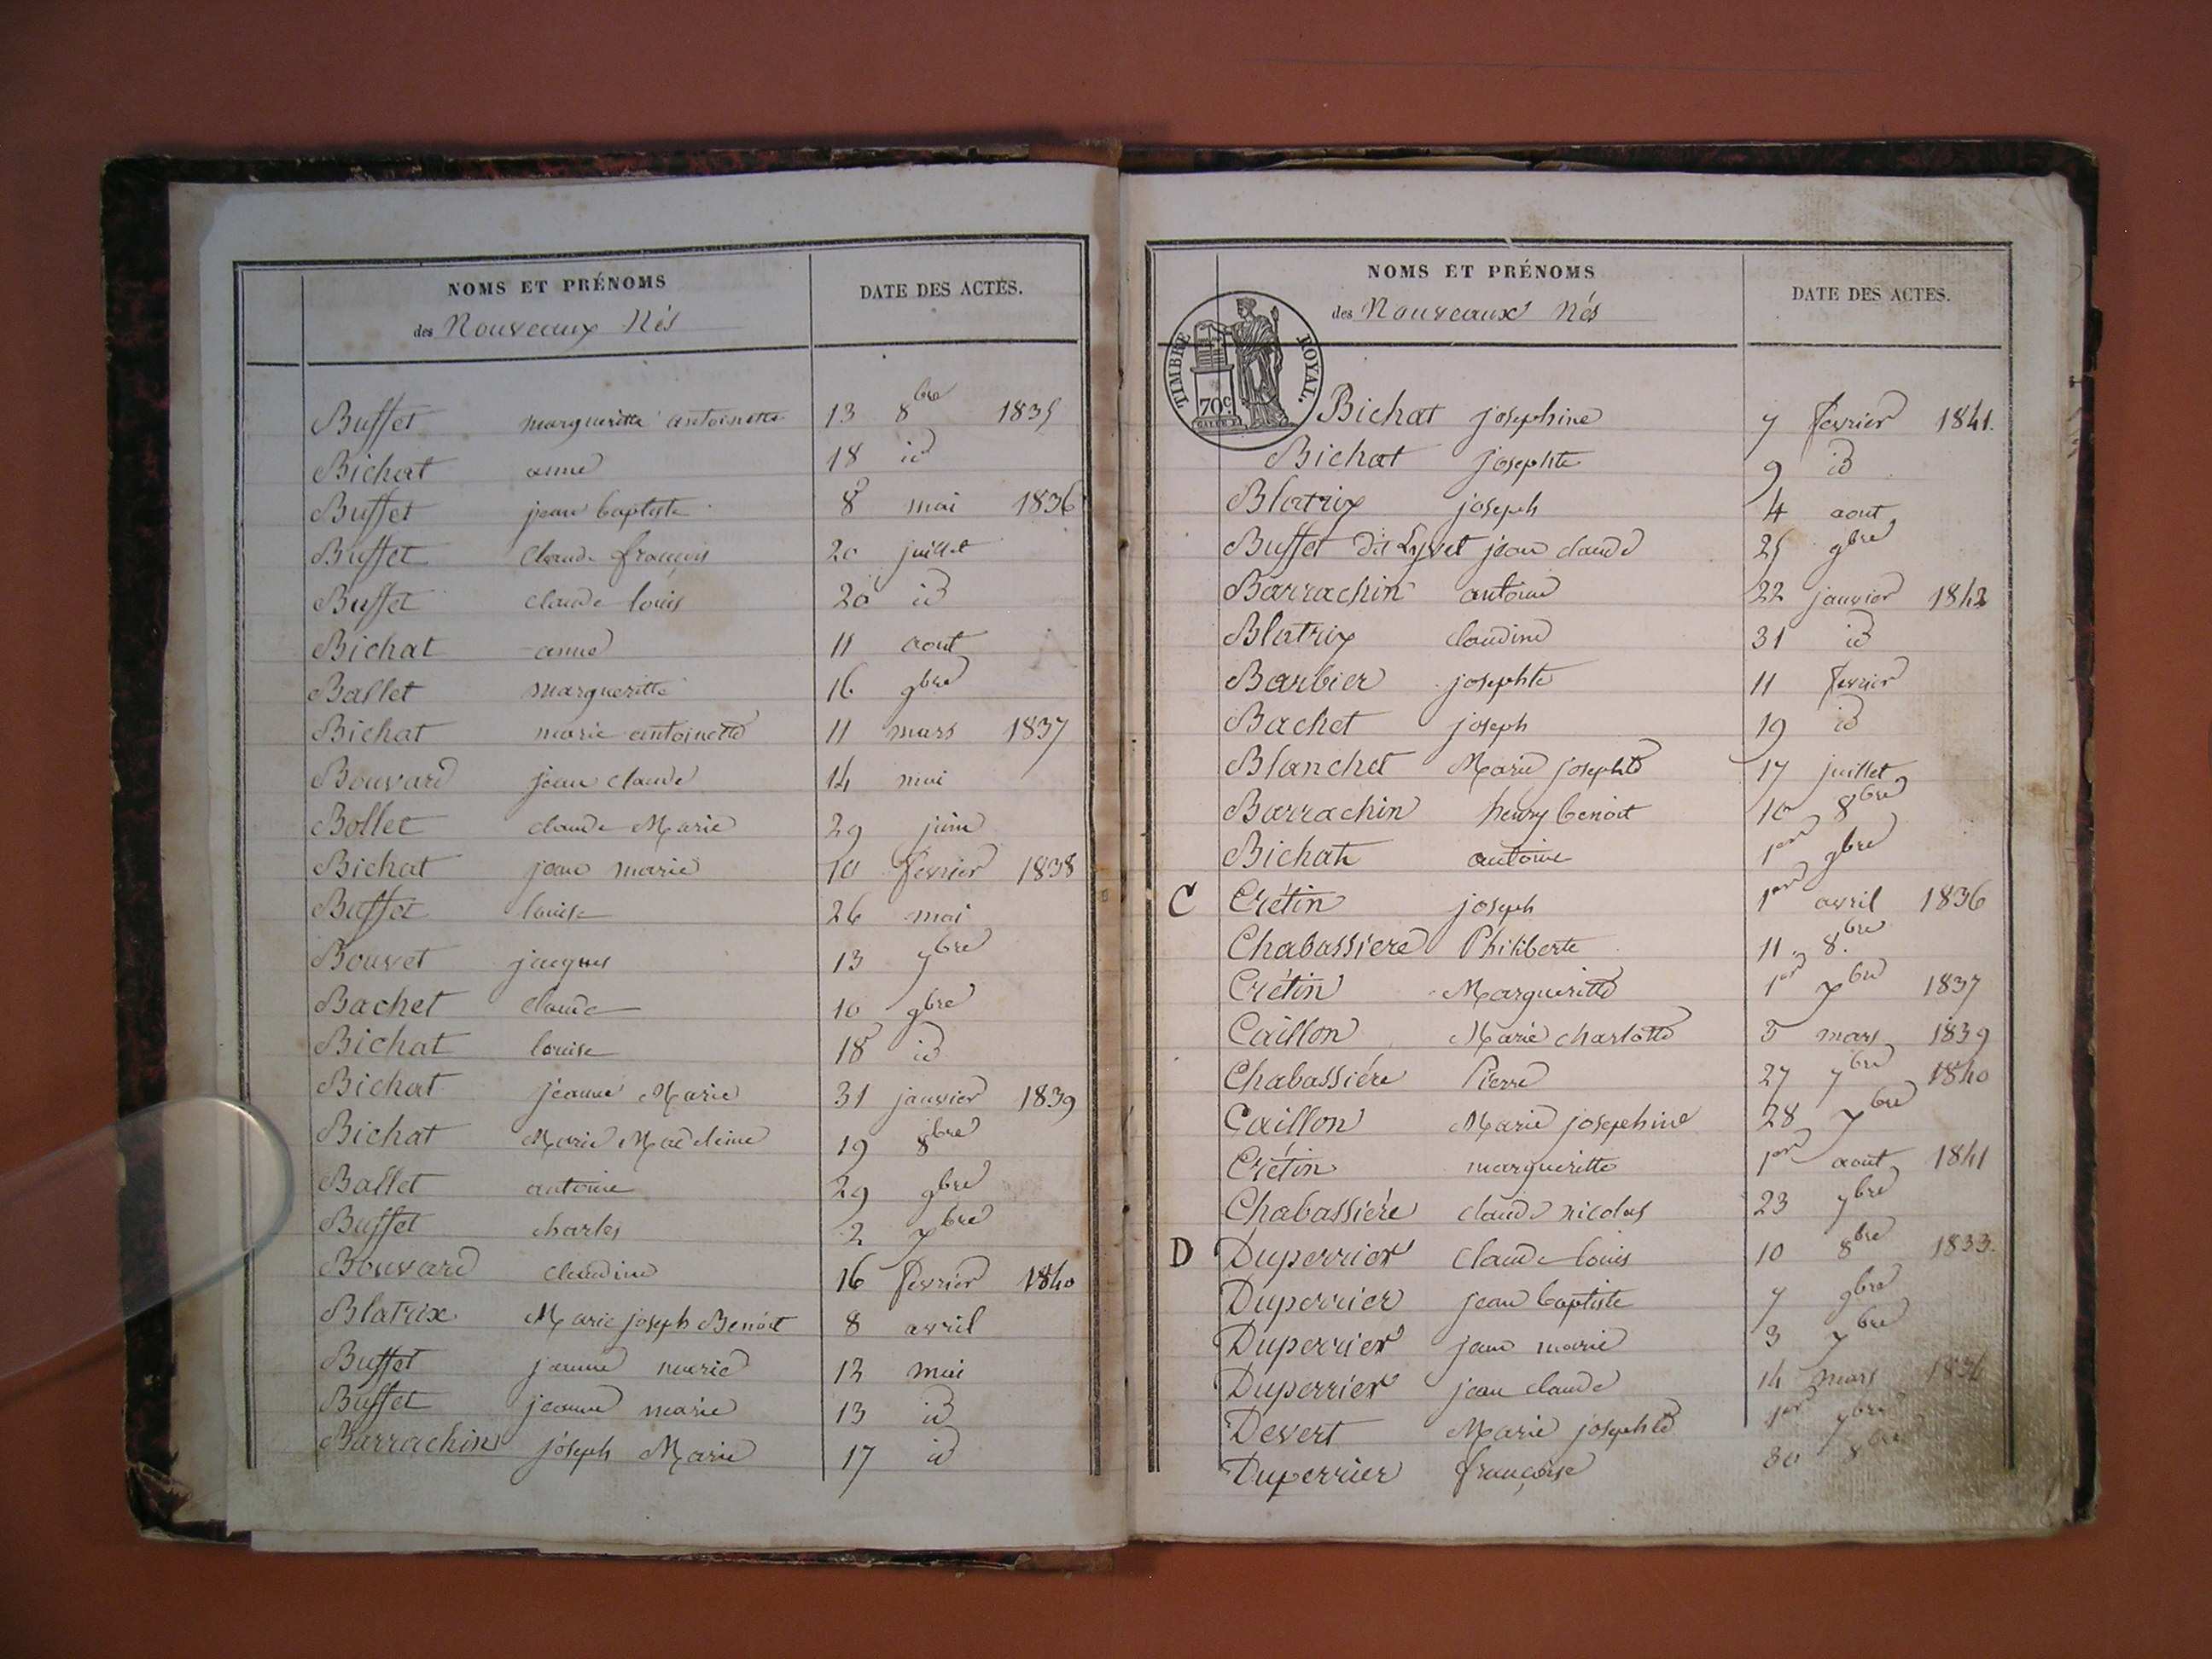 NOMS ET PRÉNOMS
des Nouveaux Nés
DATE DES ACTES.
Buffet margueritte antoinette 13 8bre 1835
Bichat anne 18 id
Buffet jean baptiste 8 mai 1836
Buffet Claude françois 20 juillet
Buffet claude louis 20 id
Bichat anne 11 aout
Ballet margueritte 16 9bre
Bichat marie antoinette 11 mars 1837
Bouvard jean claude 14 mai
Bollet claude Marie 29 juin
Bichat jean marie 10 fevrier 1838
Buffet louise 26 mai
Bouvet jacques 13 7bre
Bachet claude 10 9bre
Bichat louise 18 id
Bichat jeanne Marie 31 janvier 1839
Bichat Marie Madeleine 19 8bre
Ballet antoine 29 9bre
Buffet charles 2 7bre
Bouvard claudine 16 fevrier 1840
Blatrix Marie joseph Benoit 8 avril
Buffet jeanne marie 13 mai
Buffet jeanne marie 13 id
Barrachin joseph Marie 17 id
NOMS ET PRÉNOMS
des Nouveaux Nés
DATE DES ACTES.
TIMBRE ROYAL.
70c.
Bichat josephine 7 fevrier 1841.
Bichat josephte 9 id
Blatrix joseph 4 aout
Buffet dit Lyvet jean claude 25 9bre
Barrachin antoine 22 janvier 1842
Blatrix claudine 31 id
Barbier josephte 11 fevrier
Bachet joseph 19 id
Blanchet Marie josephte 17 juillet
Barrachin henry benoit 10 8bre
Bichat antoine 1er 9bre
C Crétin joseph 1er avril 1836
Chabassiere Philiberte 11 8bre
Crétin Margueritte 1er 7bre 1837
Caillon Marie charlotte 5 mars 1839
Chabassiére Pierre 27 7bre 1840
Caillon Marie josephine 28 7bre
Crétin margueritte 1er aout 1841
Chabassiére claude nicolas 23 7bre
D Duperrier claude louis 10 8bre 1833.
Duperrier jean baptiste 7 9bre
Duperrier jean marie 3 7bre
Duperrier jean claude 14 mars
Devert Marie josephte 1er 7bre
Duperrier françoise 30 8bre